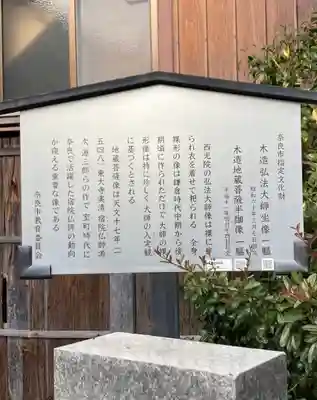 奈良市指定文化財
木造弘法大師坐像 一軀
木造地蔵菩薩半跏像 一軀
西光院の弘法大師像は裸の上か
ら衣を着せて祀られる 全身
裸形の像は鎌倉時代中期から後
期頃に作られただけで大師の裸
形像は特に珍しく大師の入定観
に基づくとされる
地蔵菩薩像は天文十七年(一
五四八)東大寺実清 宿院仏師源
次 源三郎らの作で室町時代に
奈良で活躍した宿院仏師の動向
が窺える重要な像である
奈良市教育委員会